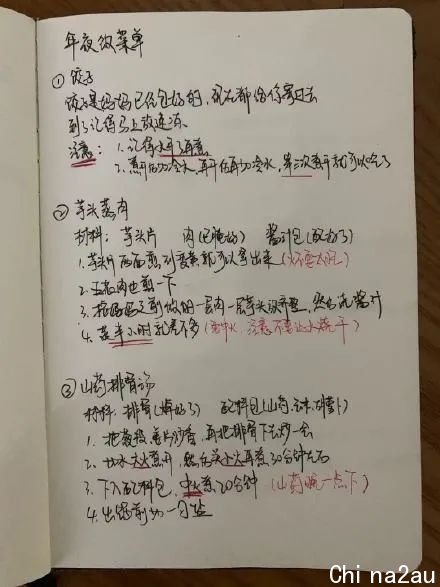 年夜饭菜单
① 饺子
饺子是妈妈已经包好的，现在都给你寄回去
到了记得马上放速冻
注意：1.记得水开了再煮
2.煮开后加冷水，再开后再加冷水，第三次煮开就可以吃了
② 芋头蒸肉
材料：芋头片 肉（已腌好） 酱汁包（配好了）
1.芋头片两面煎，到变黄就可以拿出来（火不要太旺）
2.五花肉也煎一下
3.按妈妈之前做的一层肉一层芋头块齐整，然后浇酱汁
4.蒸半小时就差不多（看中火，注意不要让水烧干）
③ 山药排骨汤
材料：排骨（焯好了） 配料包（山药、玉米、胡萝卜）
1.把葱段、姜片炒香，再把排骨下去炒一会
2.加水大火煮开，然后关小火再煮30分钟左右
3.下入配料包，中火煮20分钟（山药晚一点下）
4.出锅前加一勺盐
Chi na2au